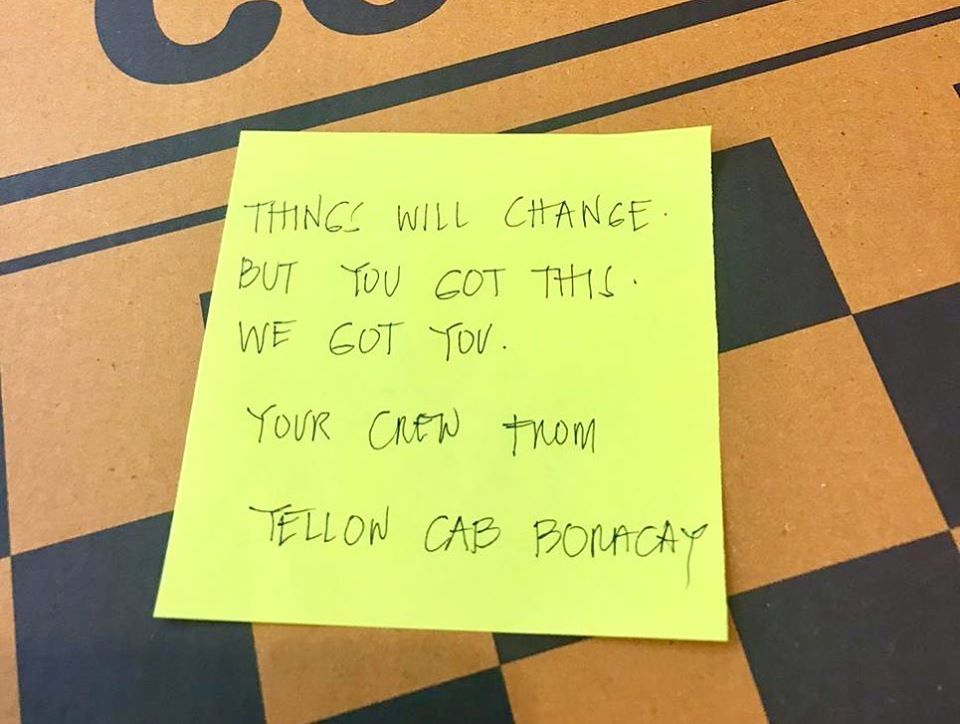 THINGS WILL CHANGE.
BUT YOU GOT THIS.
WE GOT YOU.
YOUR CREW FROM
YELLOW CAB BORACAY